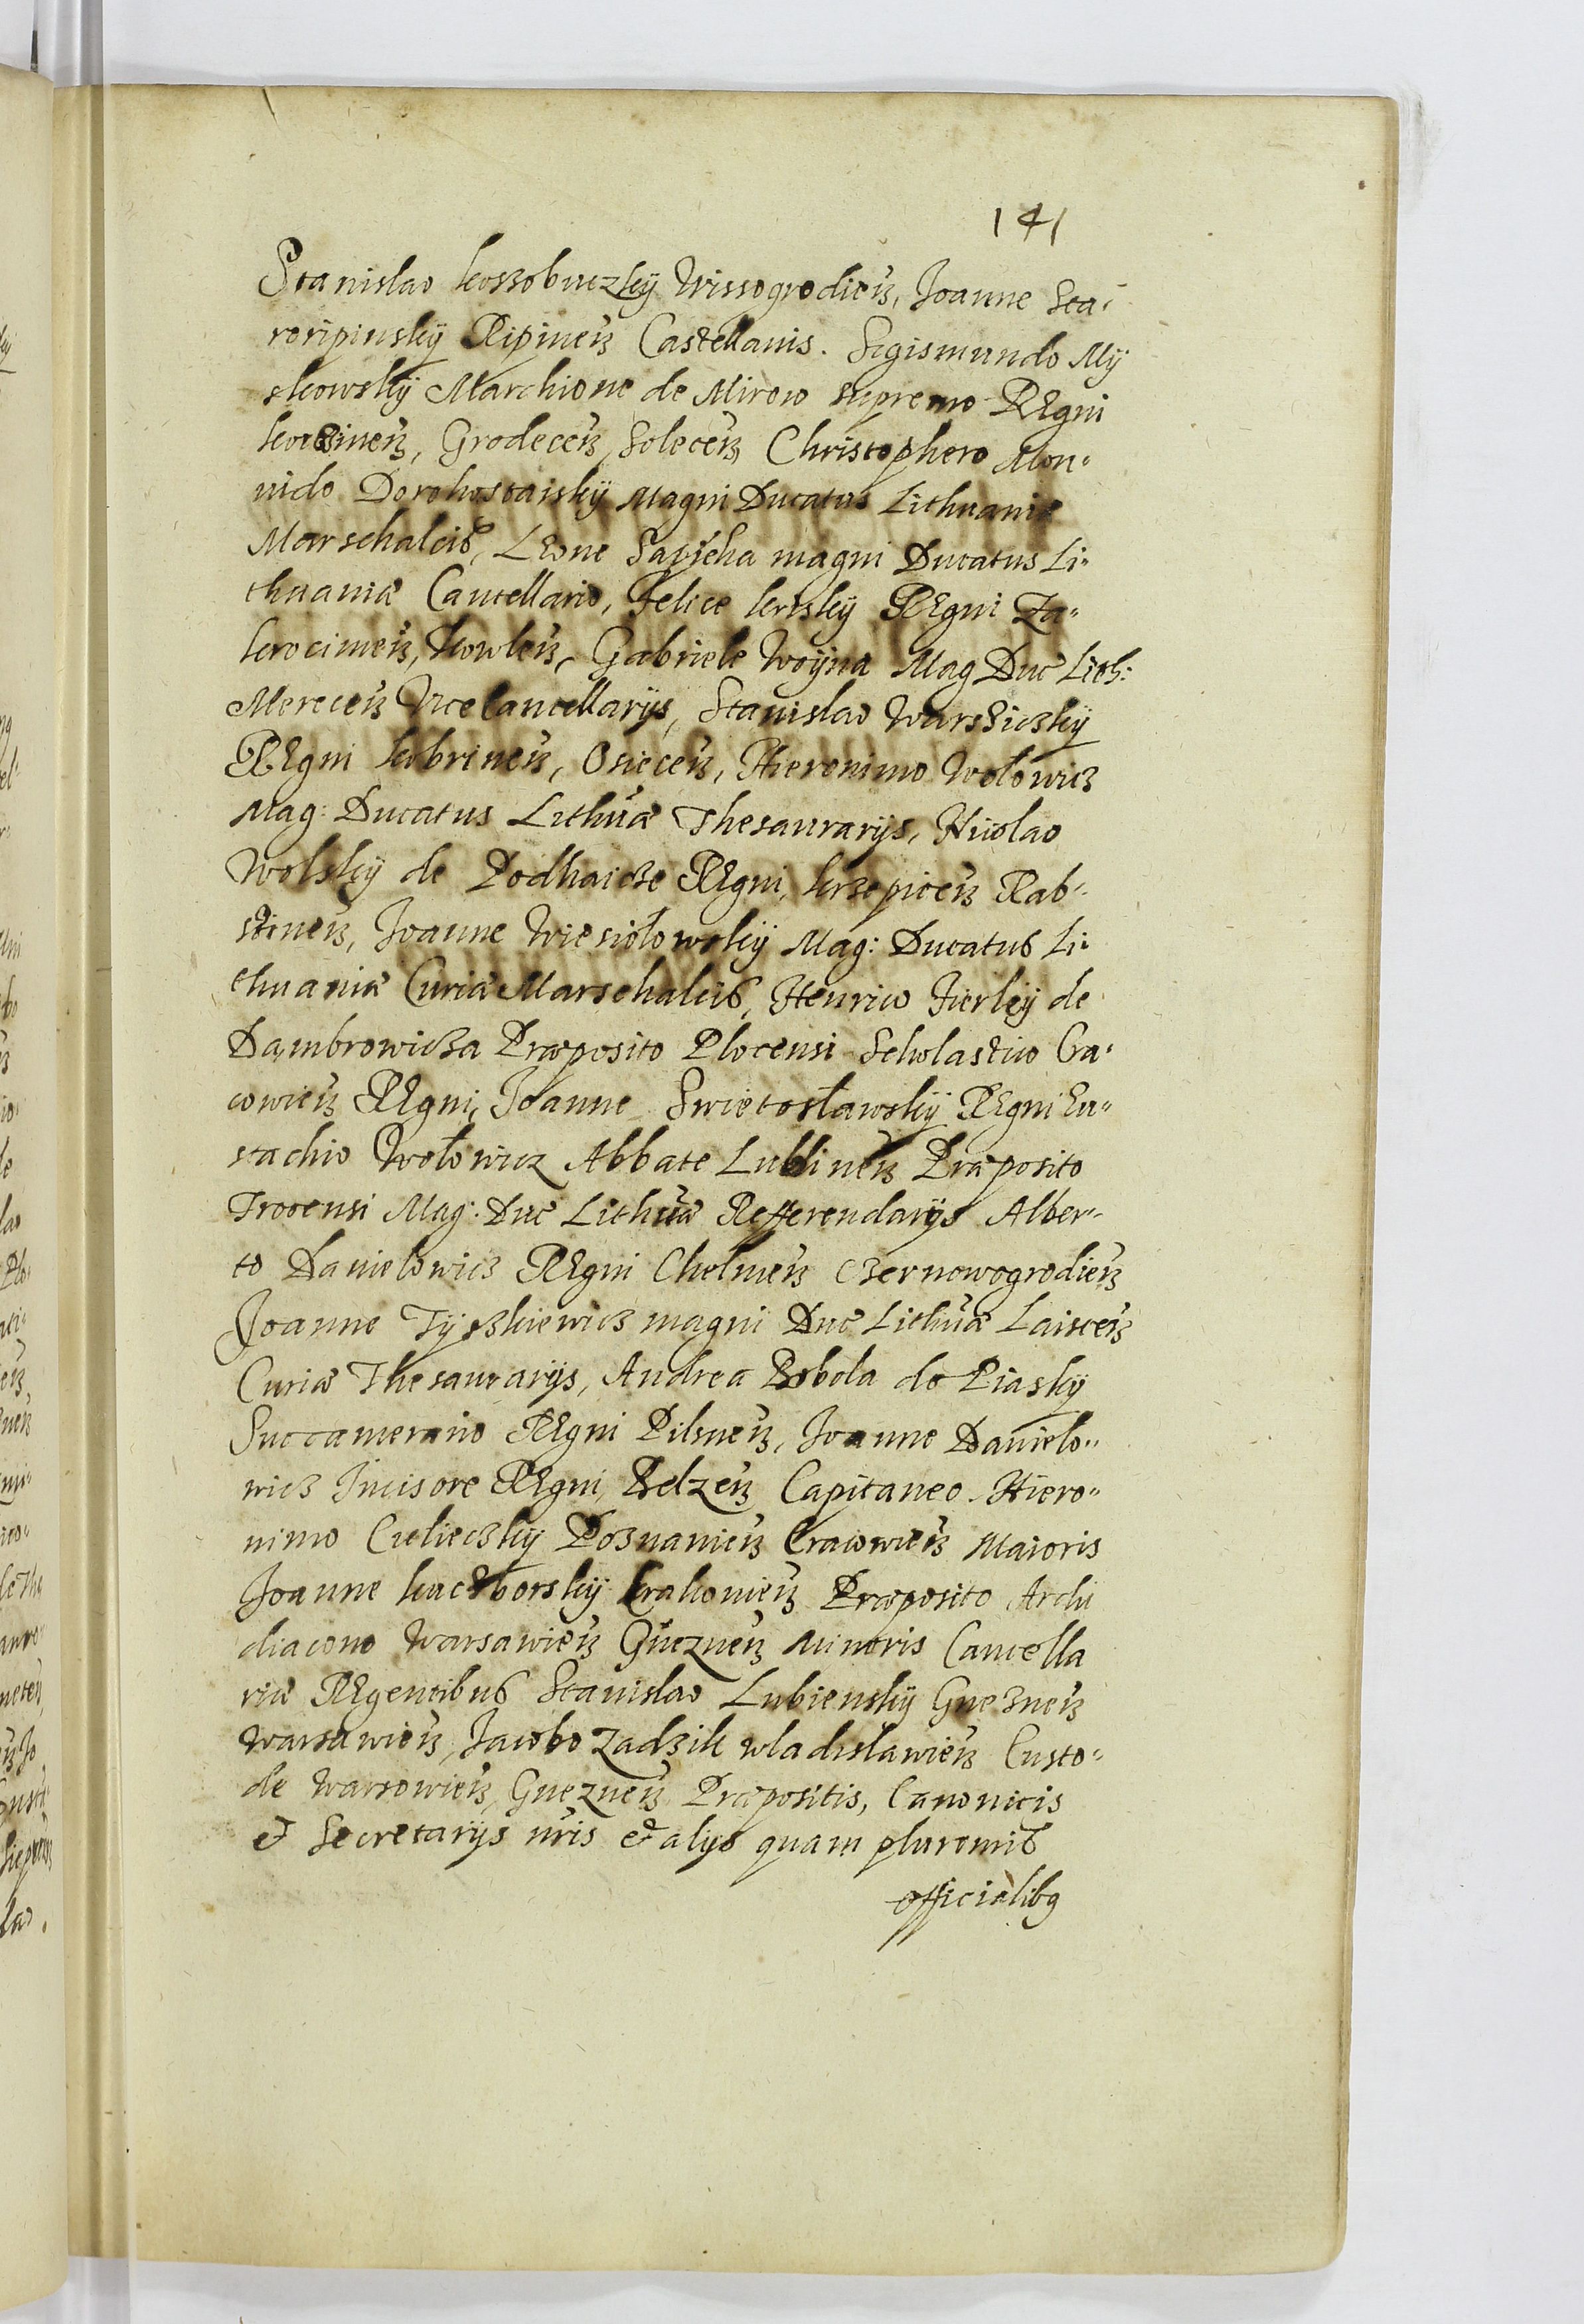 141
Stanislao kossobuczkÿ Wissogrodieñ, Joanne Sta-
roripinskÿ Ripineñ Castellanis. Sigismundo Mÿ
skowskÿ Marchione de Mirow supremo REgni
korczineñ, Grodeceñ, Soleceñ Christophero Mon-
uido Dorohostaiskÿ Magni Ducatus Lithuaniæ
Marschalcis, LEone Sapieha magni Ducatus Li-
thuaniæ Cancellario, Felice kriskÿ REgni Za-
krocimeñ, kowleñ, Gabriele Woÿna Mag Duc Lith:
Mereceñ Vicecancellarÿs, Stanislao Warssiczkÿ
REgni kobrineñ, Osieceñ, Hieronimo Wołowicz
Mag: Ducatus Lithuæ Thesaurarÿs, Nicolao
Wolskÿ de Podhaicze REgni, krzepiceñ Rab-
stineñ, Joanne Wiesiołowskÿ Mag: Ducatus Li-
thuaniæ Curiæ Marschalcis, Henrico Firlej de
Dambrowicza Præposito Plocensi Scholastico Cra-
cowieñ REgni, Joanne Swietosławskÿ REgni Eu-
stachio Wołowicz Abbate Lublineñ Præposito
Trocensi Mag: Duc Lithuæ Refferendarÿs Alber-
to Daniełowicz REgni Chelmeñ Czernowogrodieñ
Joanne Tÿszkiewicz magni Duc Lithuæ Laisceñ
Curiæ Thesaurarÿs, Andrea Bobola de Piaskÿ
Succamerario REgni Pilsneñ, Joanne Danielo-
wicz Incisore REgni, Belzeñ Capitaneo. Hiero-
nimo Cielieczkÿ Poznanieñ Cracowieñ Maioris
Joanne kuczborskÿ Crakovieñ Præposito Archi
diacono Warsawieñ Gnezneñ Minoris Cancella
riæ REgentibus Stanislao Lubienskÿ Gnezneñ
Warsawieñ, Jacobo Zadzik Wladislawieñ Custo-
de Warsowieñ, Gnezneñ Præpositis, Canonicis
et Secretarÿs nris et alÿs quam plurimis
officialibq